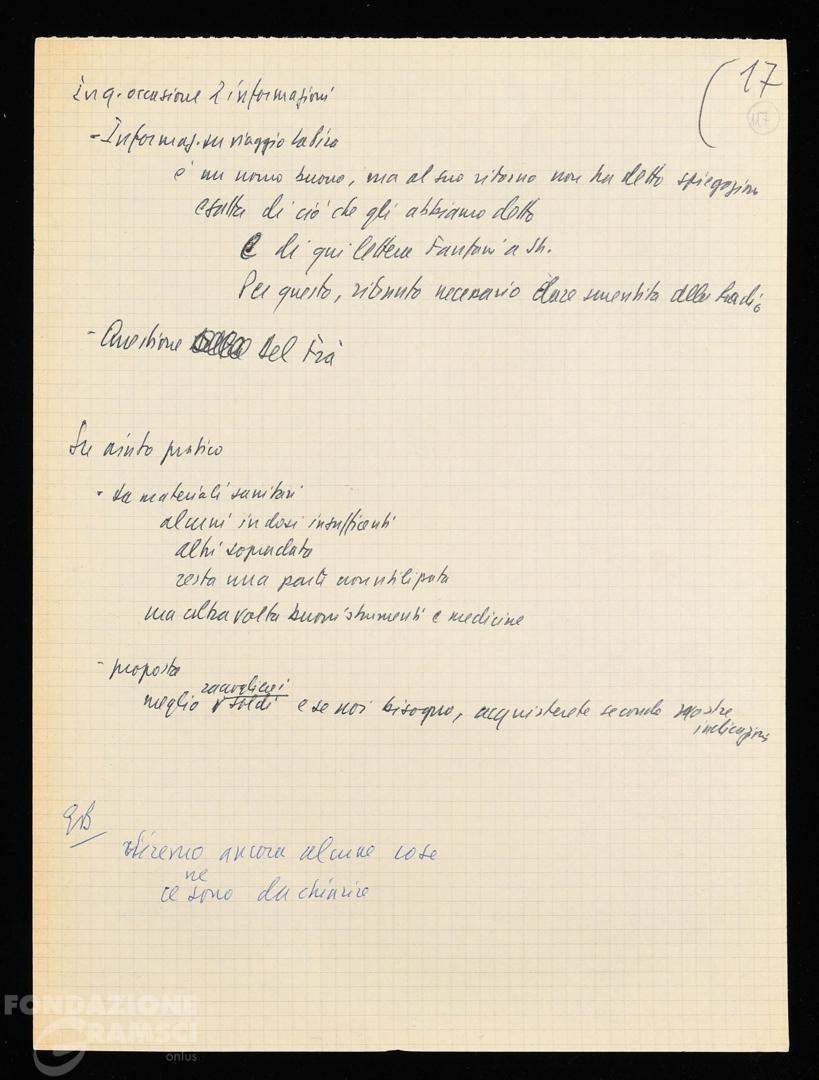 17
117
In q. occasione 2 informazioni
- Informaz. su viaggio La Pira
è un uomo buono, ma al suo ritorno non ha detto spiegazioni
esatta di ciò che gli abbiamo detto
E di qui lettera Fanfani a Sh.
Per questo, ritenuto necessario dare smentita alla radio
- Questione del Frà
Su aiuto pratico
- da materiali sanitari
alcuni in dosi insufficienti
altri
resta una parte non utilizzata
ma altra volta buoni strumenti e medicine
- proposta
raccoglierei
meglio soldi e se noi bisogno, acquisterete secondo nostre
indicazioni
EB
diremo ancora alcune cose
ne
ce sono da chiarire
FONDAZIONE
GRAMSCI
onlus